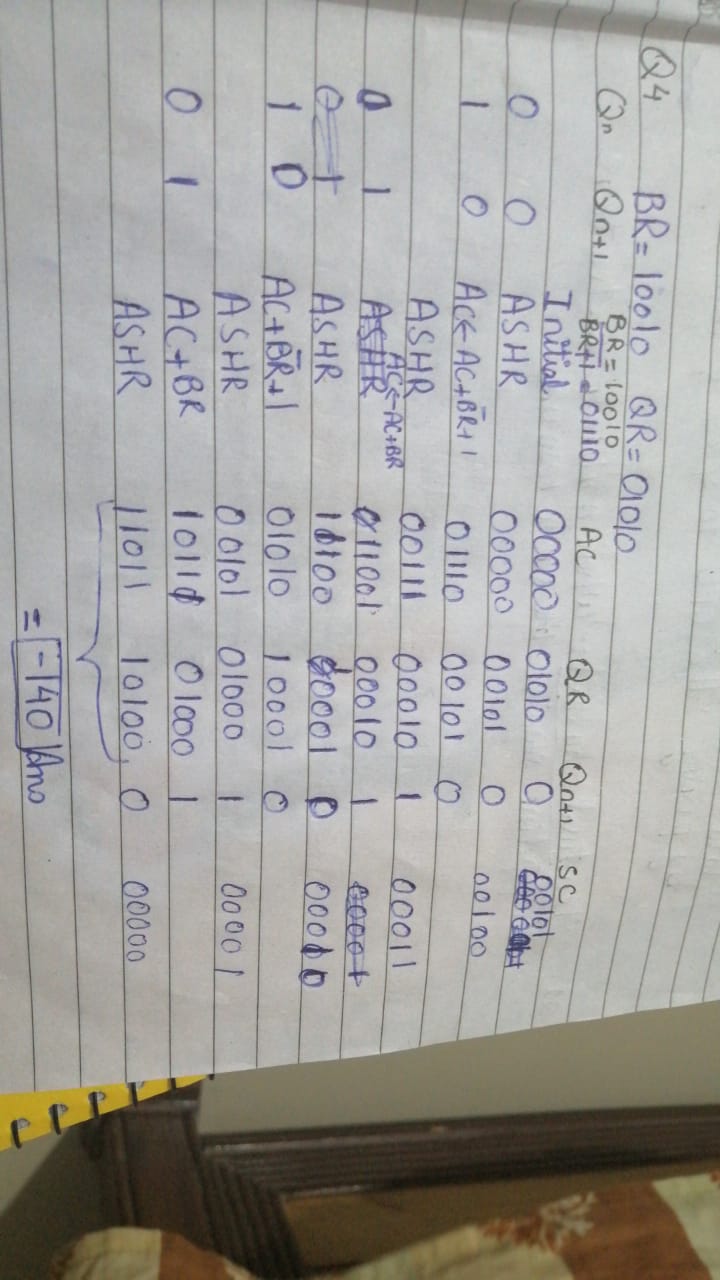 Q4 BR = 10010 QR = 01010
Qn Qn+1 BR = 10010
B̅R̅+1 = 01110 AC QR Qn+1 SC
Initial 00000 01010 0 00101
0 0 ASHR 00000 00101 0 00100
1 0 AC← AC+B̅R+1 01110 00101 0
ASHR 00111 00010 1 00011
AC←AC+BR
0 1 ASHR 11001 00010 1 00001
0 1 ASHR 11100 10001 0 00010
1 0 AC+B̅R̅+1 01010 10001 0
ASHR 00101 01000 1 00001
0 1 AC+BR 10111 01000 1
ASHR 11011 10100 0 00000
= -140 Ans